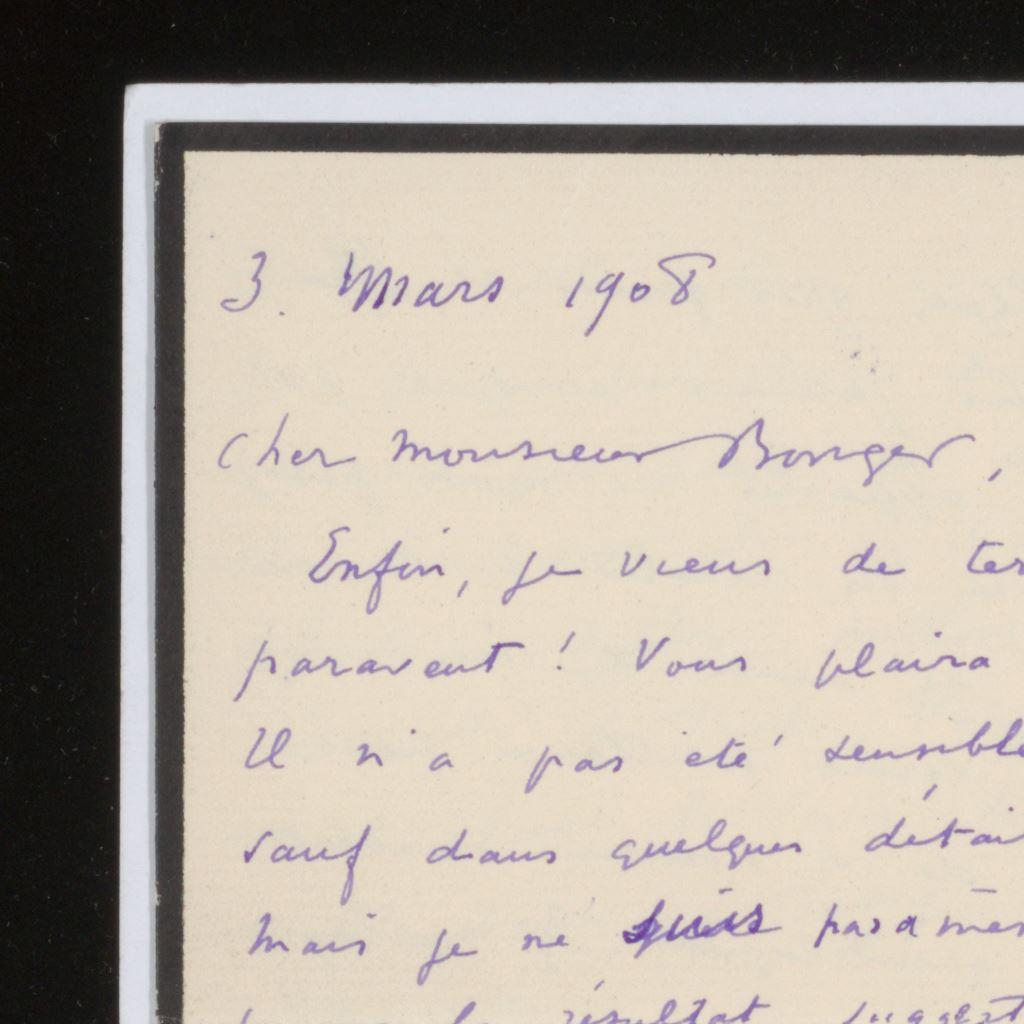 3. Mars 1908
Cher monsieur Bonger,
Enfin, je viens de ter
paravent ! Vous plaira
Il n'a pas été sensible
sauf dans quelques détai
Mais je ne suis pas à mêm
résultat suggest